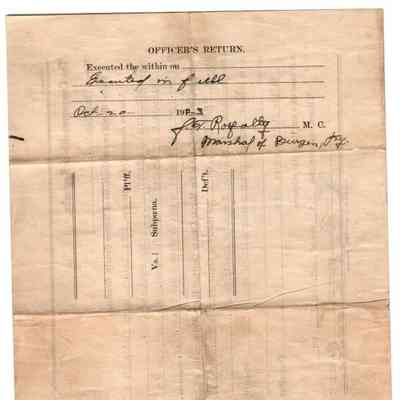 OFFICER'S RETURN.
Executed the within on
Executed in full
Oct 20 190
Royalty M. C.
Marshal of Burgin, Ky
Pl'ff.
Vs. Subpœna.
Def't.